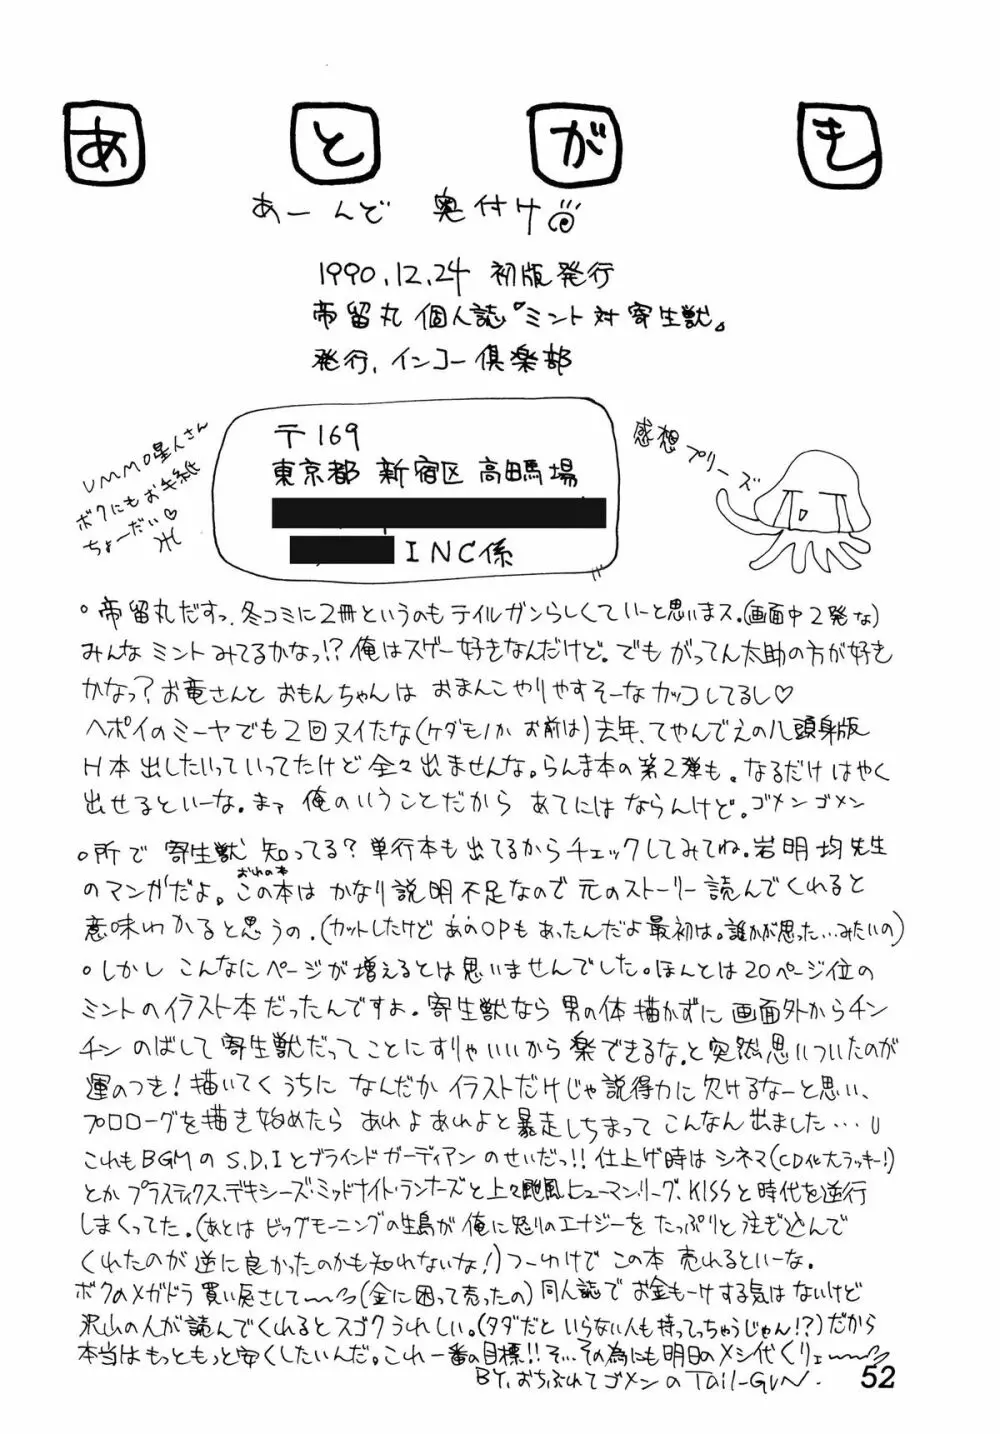 あとがき
あーんど 奥付け
1990.12.24 初版発行
帝留丸 個人誌『ミント対寄生獣』
発行、インコー倶楽部
〒169
東京都 新宿区 高田馬場
INC係
UMMO星人さん
ボクにもお手紙
ちょーだい♡
感想プリーズ
。帝留丸だすっ、冬コミに2冊というのもテイルガンらしくていーと思いまス。(画面中2発な)
みんなミントみてるかなっ!?俺はスゲー好きなんだけど。でもがってん太助の方が好き
かなっ?お竜さんとおもんちゃんはおまんこやりやすそーなカッコしてるし♡
ヘポイのミーヤでも2回ヌイたな(ケダモノか お前は)去年、てやんでえの八頭身版
H本出したいっていってたけど全々出ませんな。らんま本の第2弾も。なるだけはやく
出せるといーな。まァ俺のいうことだからあてにはならんけど。ゴメンゴメン
。所で寄生獣知ってる?単行本も出てるからチェックしてみてね。岩明均先生
のマンガだよ。この本はかなり説明不足なので元のストーリー読んでくれると
おれの本
意味わかると思うの.(カットしたけどあのOPもあったんだよ最初は。誰かが思った…みたいの)
。しかしこんなにページが増えるとは思いませんでした。ほんとは20ページ位の
ミントのイラスト本だったんですよ。寄生獣なら男の体描かずに画面外からチン
チンのばして寄生獣だってことにすりゃいいから楽できるな。と突然思いついたのが
運のつき!描いてくうちになんだかイラストだけじゃ説得力に欠けるなーと思い、
プロローグを描き始めたらあれよあれよと暴走しちまってこんなん出ました…
これもBGMのS.D.Iとブラインドガーディアンのせいだっ!!仕上げ時はシネマ(CD化大ラッキー!)
とかプラスティクス、デキシーズ・ミッドナイト・ランナーズと上々颱風、ヒューマン・リーグ、KISSと時代を逆行
しまくってた。(あとはビッグモーニングの生島が俺に怒りのエナジーをたっぷりと注ぎ込んで
くれたのが逆に良かったのかも知れないな!)つーわけでこの本売れるといーな。
ボクのメガドラ買い戻さして〜(金に困って売ったの)同人誌でお金もーけする気はないけど
沢山の人が読んでくれるとスゴクうれしい。(タダだといらない人も持ってっちゃうじゃん!?)だから
本当はもっともっと安くしたいんだ。これ一番の目標!!そ…その為にも明日のメシ代くりェ〜
BY.おちぶれてゴメンのTail-GuN.
52